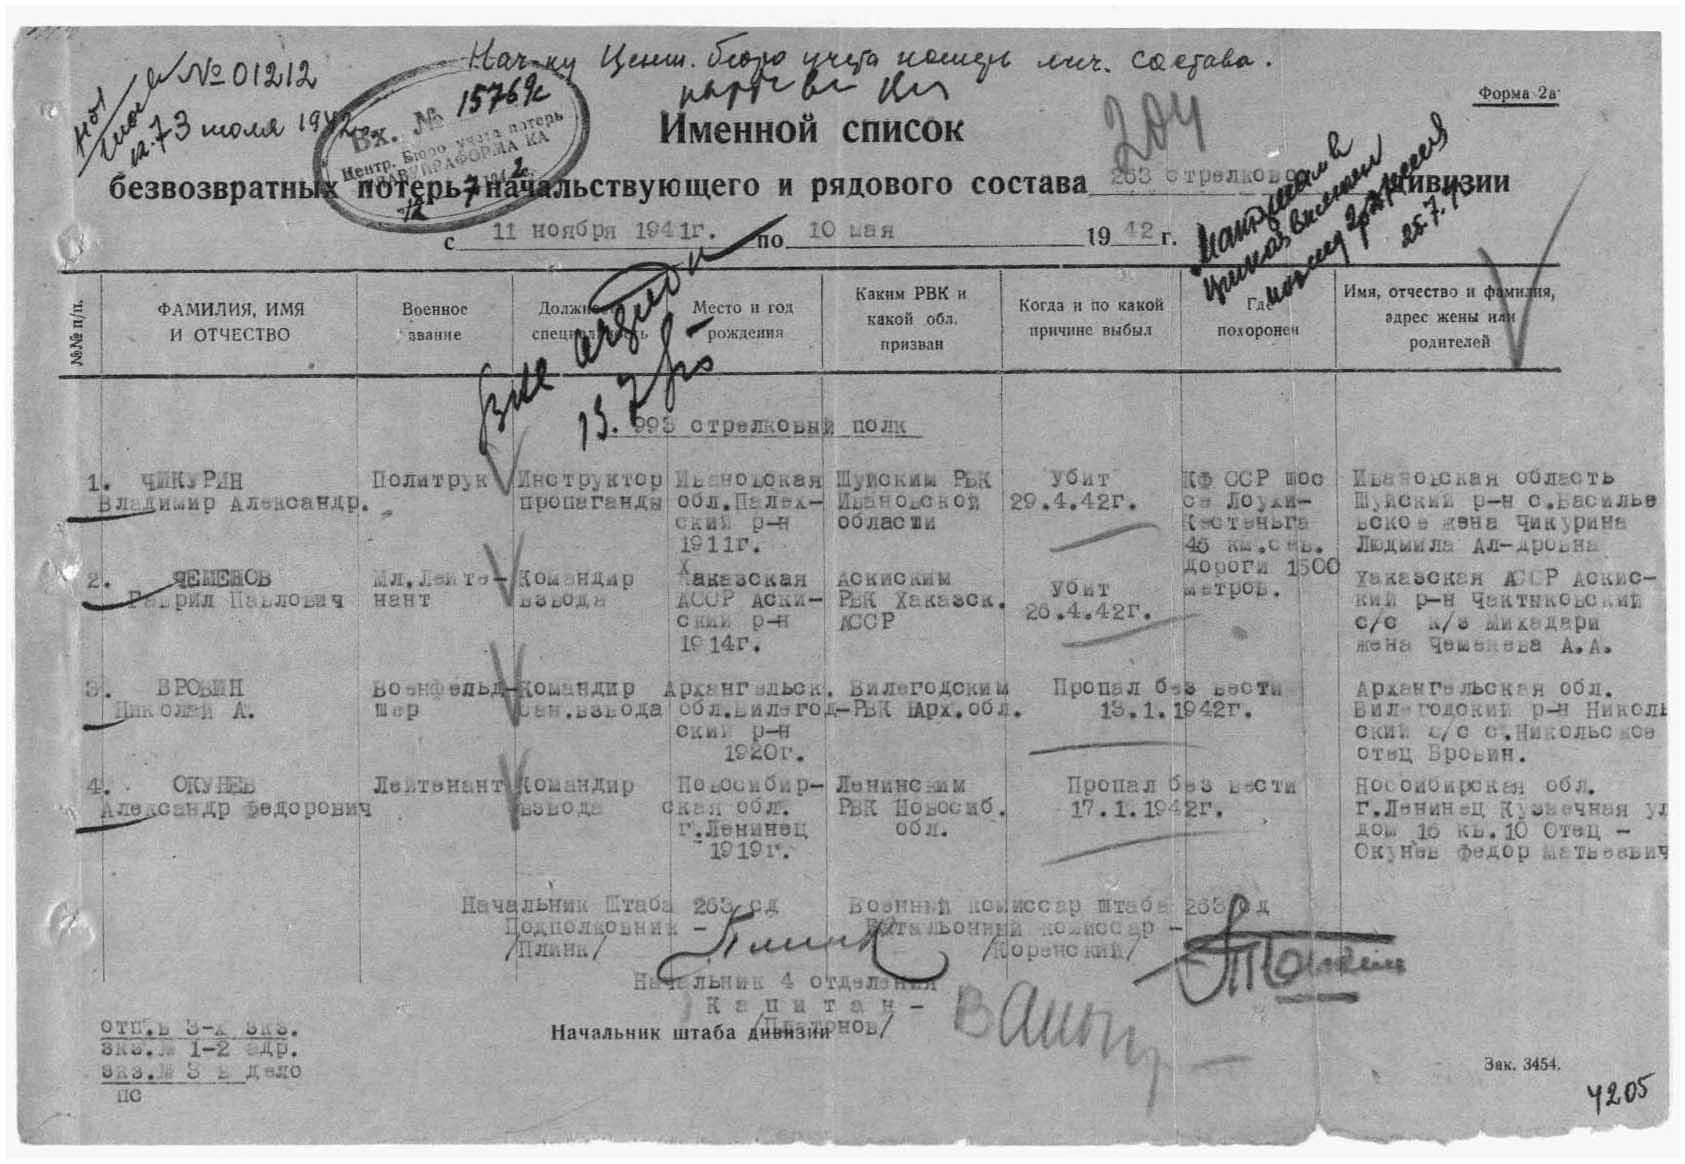 Нач-ку Центр. бюро учета потерь лич. состава.
№ 01212
3 июля 1942
Вх. № 15769с
Центр. Бюро учета потерь
ГЛАВУПРАФОРМА КА
12 7 1942
Форма 2а
204
Именной список
безвозвратных потерь начальствующего и рядового состава 263 стрелково дивизии
с 11 ноября 1941г. по 10 мая 1942 г.
25.7.
№№ п/п.
ФАМИЛИЯ, ИМЯ И ОТЧЕСТВО
Военное звание
Должность специальность
Место и год рождения
Каким РВК и какой обл. призван
Когда и по какой причине выбыл
Где похоронен
Имя, отчество и фамилия, адрес жены или родителей
13.7
993 стрелковый полк
1. ЧИКУРИН Политрук Инструктор Ивановская Шуйским РВК Убит КФ ССР шос Ивановская область
Владимир Александр. пропаганды обл.Палех- Ивановской 29.4.42г. се Лоухи- Шуйский р-н с.Василье
ский р-н области Кестеньга вское жена Чикурина
1911г. 46 км.сев. Людмила Ал-дровна
дороги 1500
2. ЧЕМЕНОВ Мл.Лейте- Командир Хаказская Аскиским Убит метров. Хаказская АССР Аскис-
Гаврил Павлович нант взвода АССР Аски- РВК Хаказск. 26.4.42г. кий р-н Чактыковский
ский р-н АССР с/с к/з Михадари
1914г. жена Чеменева А.А.
3. БРОВИН Военфельд- Командир Архангельск. Вилегодским Пропал без вести Архангельская обл.
Николай А. шер сан.взвода обл.Вилегод- РВК Арх.обл. 13.1.1942г. Вилегодский р-н Николь
ский р-н ский с/с с.Никольское
1920г. отец Бровин.
4. ОКУНЕВ Лейтенант Командир Новосибир- Ленинским Пропал без вести Новосибирская обл.
Александр Федорович взвода ская обл. РВК Новосиб. 17.1.1942г. г.Ленинец Кузнечная ул
г.Ленинец обл. дом 16 кв.10 Отец -
1919г. Окунев Федор Матвеевич
Начальник Штаба 263 сд Военный комиссар штаба 263 сд
Подполковник - Батальонный комиссар -
/Плинк/ /Коренский/
Начальник 4 отделения
Капитан -
/Платонов/
Начальник штаба дивизии
отп.в 3-х экз.
экз.№ 1-2 адр.
экз.№ 3 в дело
ПС
Зак. 3454.
4205